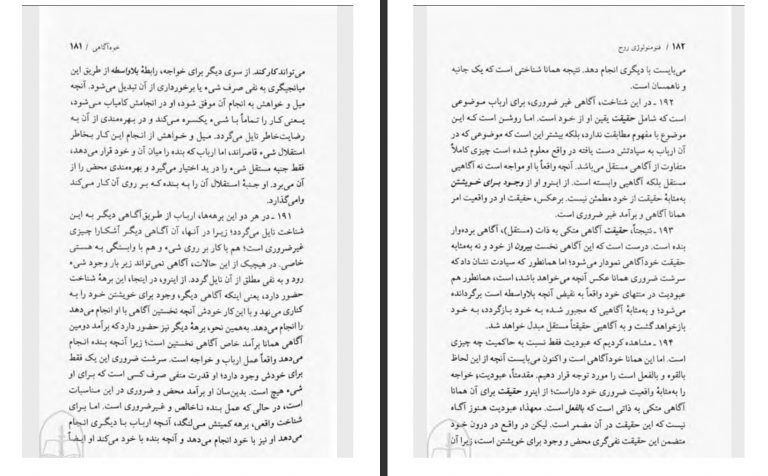 خودآگاهی / ۱۸۱
می‌تواند کار کند. از سوی دیگر برای خواجه، رابطهٔ بلاواسطه از طریق این
میانجیگری به نفی صرف شیء یا برخورداری از آن تبدیل می‌شود. آنچه
میل و خواهش به انجام آن موفق نشود، او در انجامش کامیاب می‌شود،
یعنی کار را تماماً با شیء یکسره می‌کند و در بهره‌مندی از آن به
رضایت‌خاطر نایل می‌گردد. میل و خواهش از انجام این کار بخاطر
استقلال شیء قاصراند، اما ارباب که بنده را میان آن و خود قرار می‌دهد،
فقط جنبه مستقل شیء را در ید اختیار می‌گیرد و بهره‌مندی محض را از
آن می‌برد. او جنبهٔ استقلال آن را به بنده که بر روی آن کار می‌کند
وامی‌گذارد.
۱۹۱ ـ در هر دو این برهه‌ها، ارباب از طریق آگاهی دیگر به این
شناخت نایل می‌گردد؛ زیرا در آنها، آن آگاهی دیگر آشکارا چیزی
غیرضروری است؛ هم با کار بر روی شیء و هم با وابستگی به هستی
خاصی. در هیچیک از این حالات، آگاهی نمی‌تواند زیر بار وجود شیء
رود و به نفی مطلق از آن نایل گردد. از اینرو، در اینجا، این برههٔ شناخت
حضور دارد، یعنی اینکه آگاهی دیگر، وجود برای خویشتن خود را به
کناری می‌نهد و با این کار خودش آنچه نخستین آگاهی با او انجام می‌دهد
را انجام می‌دهد. به‌همین نحو، برههٔ دیگر نیز حضور دارد که برآمد دومین
آگاهی همانا برآمد خاص آگاهی نخستین است؛ زیرا آنچه بنده انجام
می‌دهد واقعاً عمل ارباب و خواجه است. سرشت ضروری این یک فقط
برای خودش وجود دارد؛ او قدرت منفی صرف کسی است که برای او
شیء هیچ است. بدین‌سان او برآمد محض و ضروری در این مناسبات
است، در حالی که عمل بنده ناخالص و غیرضروری است. اما برای
شناخت واقعی، برهه کمیتش می‌لنگد، آنچه ارباب با دیگری انجام
می‌دهد او نیز با خود انجام می‌دهد و آنچه بنده با خود می‌کند او ایضاً
۱۸۲ / فنومنولوژی روح
می‌بایست با دیگری انجام دهد. نتیجه همانا شناختی است که یک جانبه
و ناهمسان است.
۱۹۲ ـ در این شناخت، آگاهی غیر ضروری، برای ارباب موضوعی
است که شامل حقیقت یقین او از خود است. اما روشن است که این
موضوع با مفهوم مطابقت ندارد، بلکه بیشتر این است که موضوعی که در
آن ارباب به سیادتش دست یافته در واقع معلوم شده است چیزی کاملاً
متفاوت از آگاهی مستقل می‌باشد. آنچه واقعاً با او مواجه است نه آگاهی
مستقل بلکه آگاهیی وابسته است. از اینرو او از وجود برای خویشتن
به‌مثابهٔ حقیقت از خود مطمئن نیست. برعکس، حقیقت او در واقعیت امر
همانا آگاهی و برآمد غیر ضروری است.
۱۹۳ ـ نتیجتاً، حقیقت آگاهی متکی به ذات (مستقل)، آگاهی برده‌وار
بنده است. درست است که این آگاهی نخست بیرون از خود و نه به‌مثابه
حقیقت خودآگاهی نمودار می‌شود؛ اما همانطور که سیادت نشان داد که
سرشت ضروری همانا عکس آنچه می‌خواهد باشد، است، همانطور هم
عبودیت در منتهای خود واقعاً به نقیض آنچه بلاواسطه است برگردانده
می‌شود؛ و به‌مثابهٔ آگاهیی که مجبور شده به خود بازگردد، به خود
بازخواهد گشت و به آگاهیی حقیقتاً مستقل مبدل خواهد شد.
۱۹۴ ـ مشاهده کردیم که عبودیت فقط نسبت به حاکمیت چه چیزی
است. اما این همانا خودآگاهی است و اکنون می‌بایست آنچه از این لحاظ
بالقوه و بالفعل است را مورد توجه قرار دهیم. مقدمتاً، عبودیت، خواجه
را به‌مثابهٔ واقعیت ضروری خود داراست؛ از اینرو حقیقت برای آن همانا
آگاهی متکی به ذاتی است که بالفعل است. معهذا، عبودیت هنوز آگاه
نیست که این حقیقت در آن مضمر است. لیکن در واقع در درون خود
متضمن این حقیقت نفی‌گری محض و وجود برای خویشتن است، زیرا آن